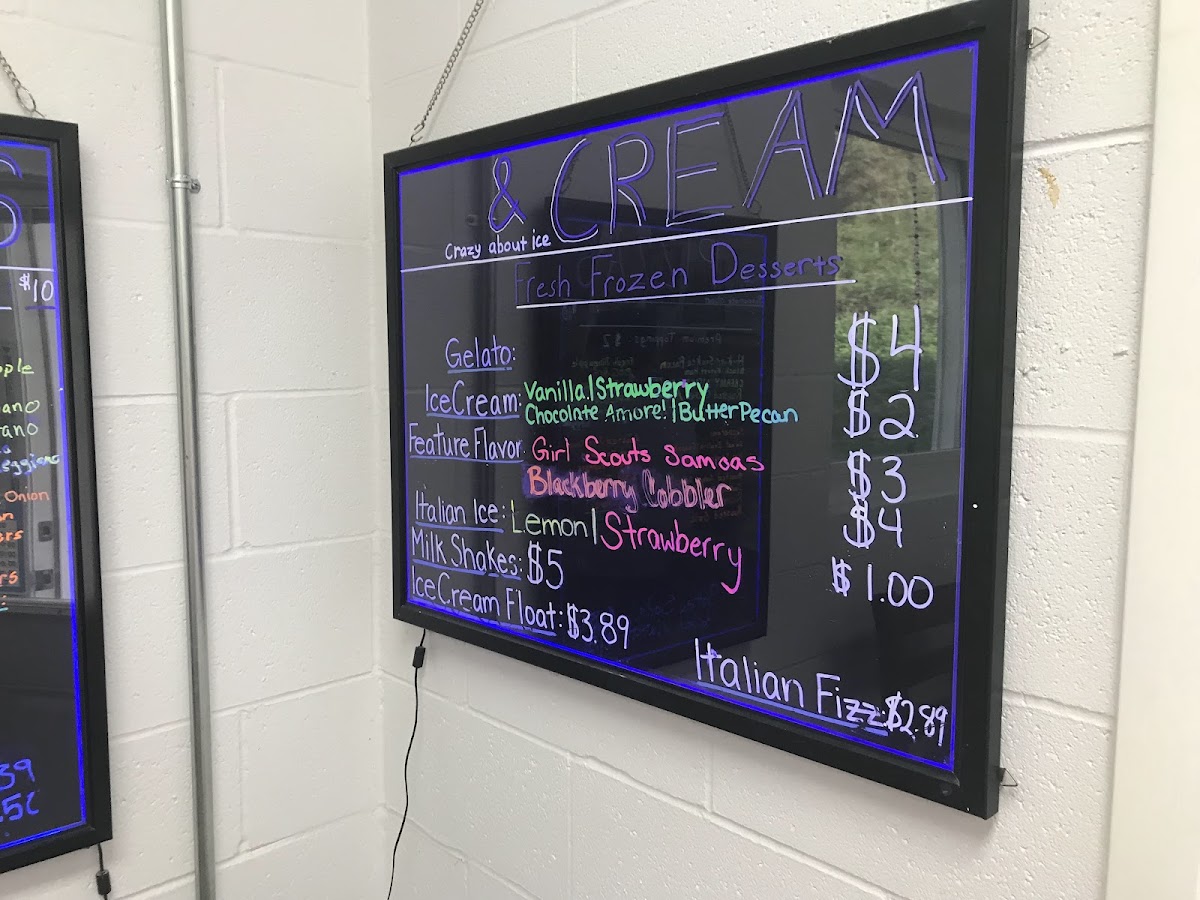 & CREAM
Crazy about ice
Fresh Frozen Desserts
Gelato: $4
IceCream: Vanilla|Strawberry $2
Chocolate Amore!|ButterPecan
Feature Flavor Girl Scouts Samoas $3
Blackberry Cobbler $4
Italian Ice: Lemon|Strawberry $1.00
Milk Shakes: $5
IceCream Float: $3.89
Italian Fizz: $2.89
S
$10
Onion
39